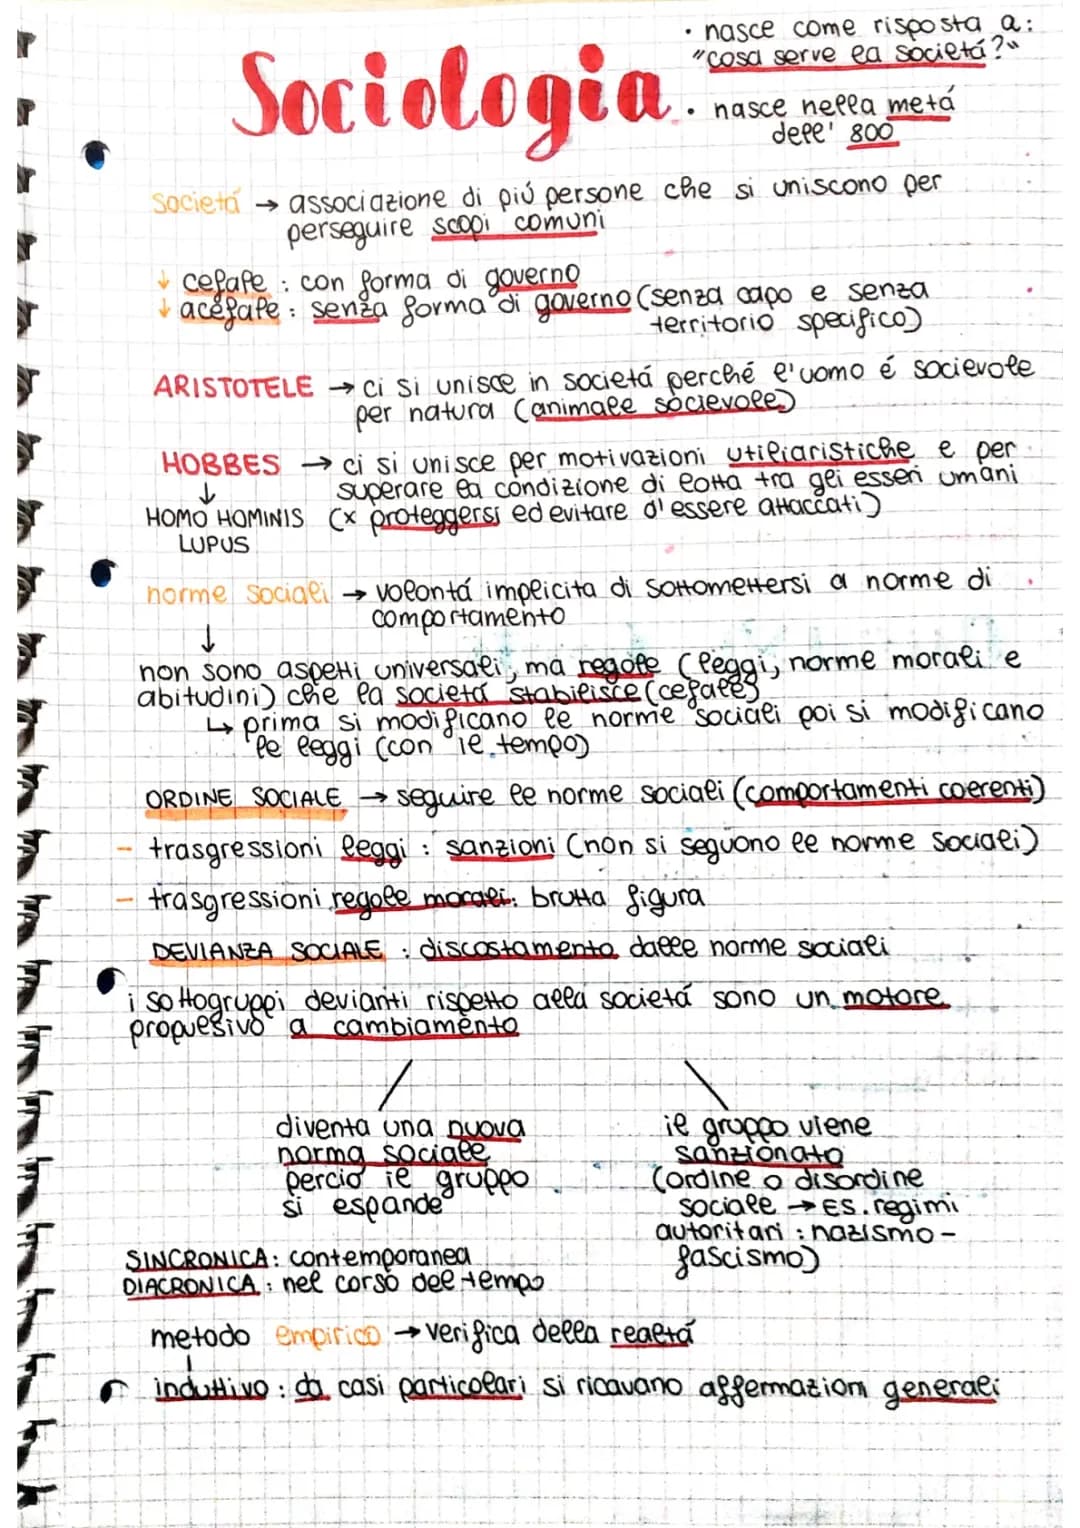 Sociologia
• nasce come risposta a:
"cosa serve la societá?"
• nasce nella metá
dell' 800
Societá → associazione di piú persone che si uniscono per
perseguire scopi comuni
↓ cefale : con forma di governo
↓ acefale : senza forma di governo (senza capo e senza
territorio specifico)
ARISTOTELE → ci si unisce in societá perché l'uomo é socievole
per natura (animale socievole)
HOBBES → ci si unisce per motivazioni utiliaristiche e per
↓ superare la condizione di lotta tra gli esseri umani
HOMO HOMINIS (x proteggersi ed evitare d'essere attaccati)
LUPUS
norme sociali → volontá implicita di sottomettersi a norme di
↓ comportamento
non sono aspetti universali, ma regole (leggi, norme morali e
abitudini) che la societá stabilisce (cefale)
↳ prima si modificano le norme sociali poi si modificano
le leggi (con il tempo)
ORDINE SOCIALE → seguire le norme sociali (comportamenti coerenti)
- trasgressioni leggi : sanzioni (non si seguono le norme sociali)
- trasgressioni regole morali: brutta figura
DEVIANZA SOCIALE : discostamento dalle norme sociali
i sottogruppi devianti rispetto alla societá sono un motore
propulsivo a cambiamento
diventa una nuova
norma sociale
perció il gruppo
si espande
il gruppo viene
sanzionato
(ordine o disordine
sociale → ES. regimi
autoritari : nazismo -
fascismo)
SINCRONICA: contemporanea
DIACRONICA : nel corso del tempo
metodo empirico → verifica della realtá
induttivo : da casi particolari si ricavano affermazioni generali